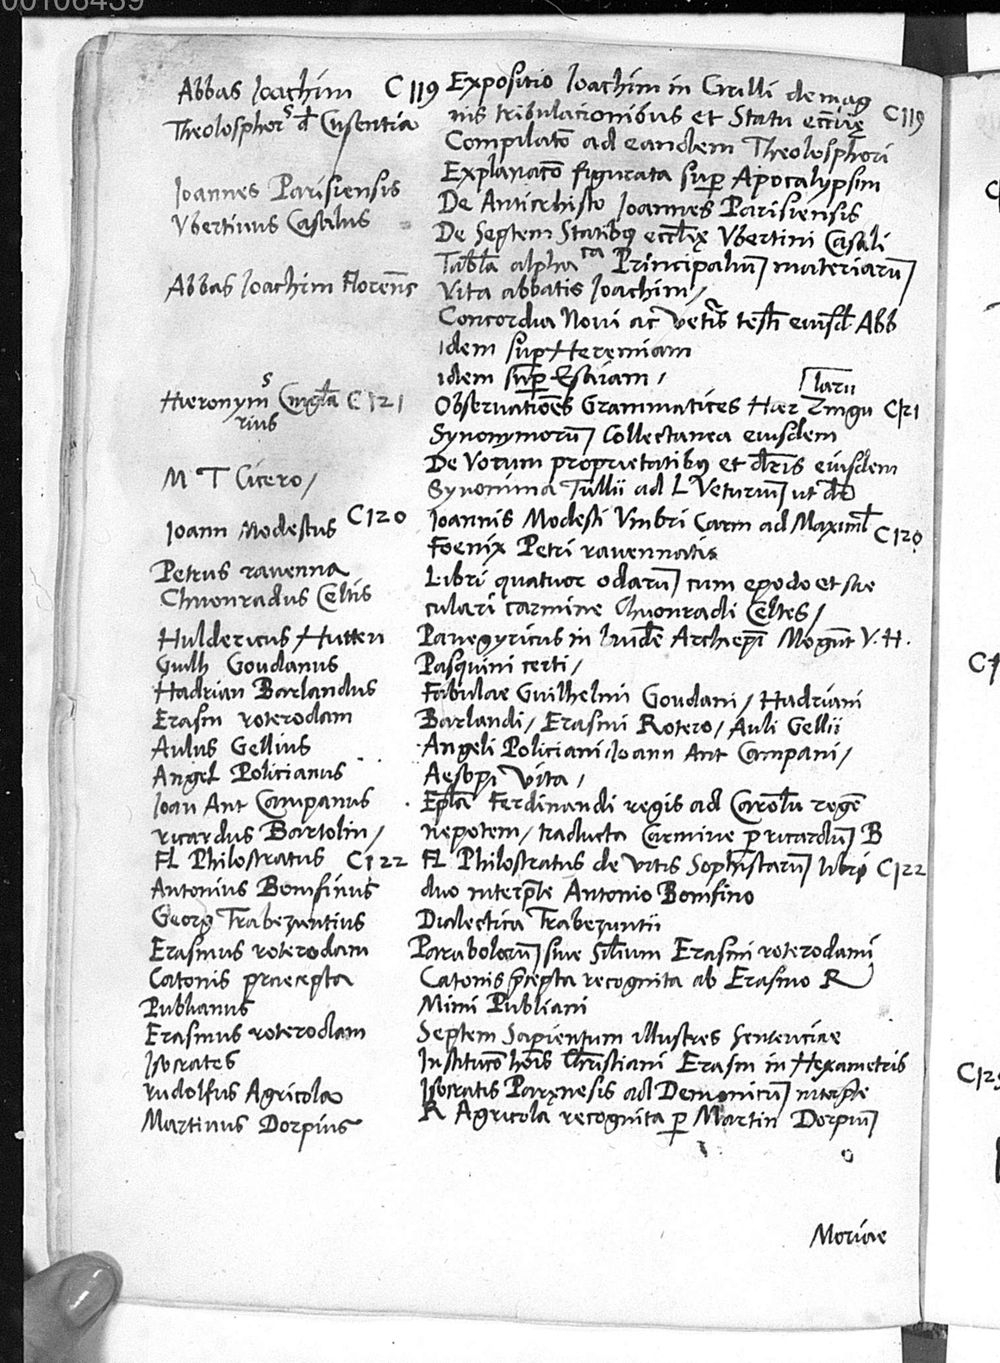 00106439
Abbas Joachim C 119 Expositio Joachim in Cirilli de mag
Theolosphorꝰ d' Cusentia nis tribulacionibus et Statu eccl'iȩ C 119
Compilatō ad eandem Theolosphori
Explanacō figurata sup Apocalypsim
Joannes Parisiensis De Antichristo Joannes Parisiensis
Vbertinus Casalus De Septem Statibꝰ eccl'iȩ Vbertini Casali
Tabl'a alpha ca Principaliū materiarū
Abbas Joachim Florens Vita abbatis Joachim /
Concordia Noui ac Veteris test' eiusd' Abb
Idem sup Heremiam
idem sup Esaiam /
laru
Hieronymꝰ Cingula C 121 Observationēs Grammatices Hier Zingu C 121
rius Synonymorū Collectanea eiusdem
De Vocum proprietatibꝰ et dr̄is eiusdem
M T Cicero / Synonima Tullii ad L Veturiū ut dr̄
Joann Modestus C 120 Joannis Modesti Vmbri Carm ad Maximil C 120
Foenix Petri ravennatis
Petrus ravenna Libri quatuor odarū cum epodo et sae
Chuonradus Celtis culari carmine Chuonradi Celtes /
Huldericus Hutten Panegyricus in laudē Archiep̄i Mogunt V. H.
Guilh Goudanus Pasquini certi /
Hadrian Barlandus Fabulae Guilhelmi Goudani / Hadriani
Erasm roterodam Barlandi / Erasmi Rotero / Auli Gellii
Aulus Gellius Angeli Policiani Joann Ant Campani /
Angel Policianus Aesopi Vita /
Joan Ant Campanus Ep̄la Ferdinandi regis ad Carolū regē
ricardus Bartolin / nepotem / traducta Carmine p ricardū B
FL Philostratus C 122 FL Philostratus de Vitis Sophistarū libri C 122
Antonius Bomfinus duo interp̄te Antonio Bomfino
Georg Trabezuntius Dialectica Trabezuntii
Erasmus roterodam Parabolarū siue Similium Erasmi roterodami
Catonis praecepta Catonis p̄cepta recognita ab Erasmo R
Publianus Mimi Publiani
Erasmus roterodam Septem Sapientum illustres sentenciae
Isocrates Institucō hōis Christiani Erasm in Hexametris
rudolfus Agricola Isocratis Parȩnesis ad Demonicū interp̄te
Martinus Dorpius R Agricola recognita p Martin Dorpiū
Moriae